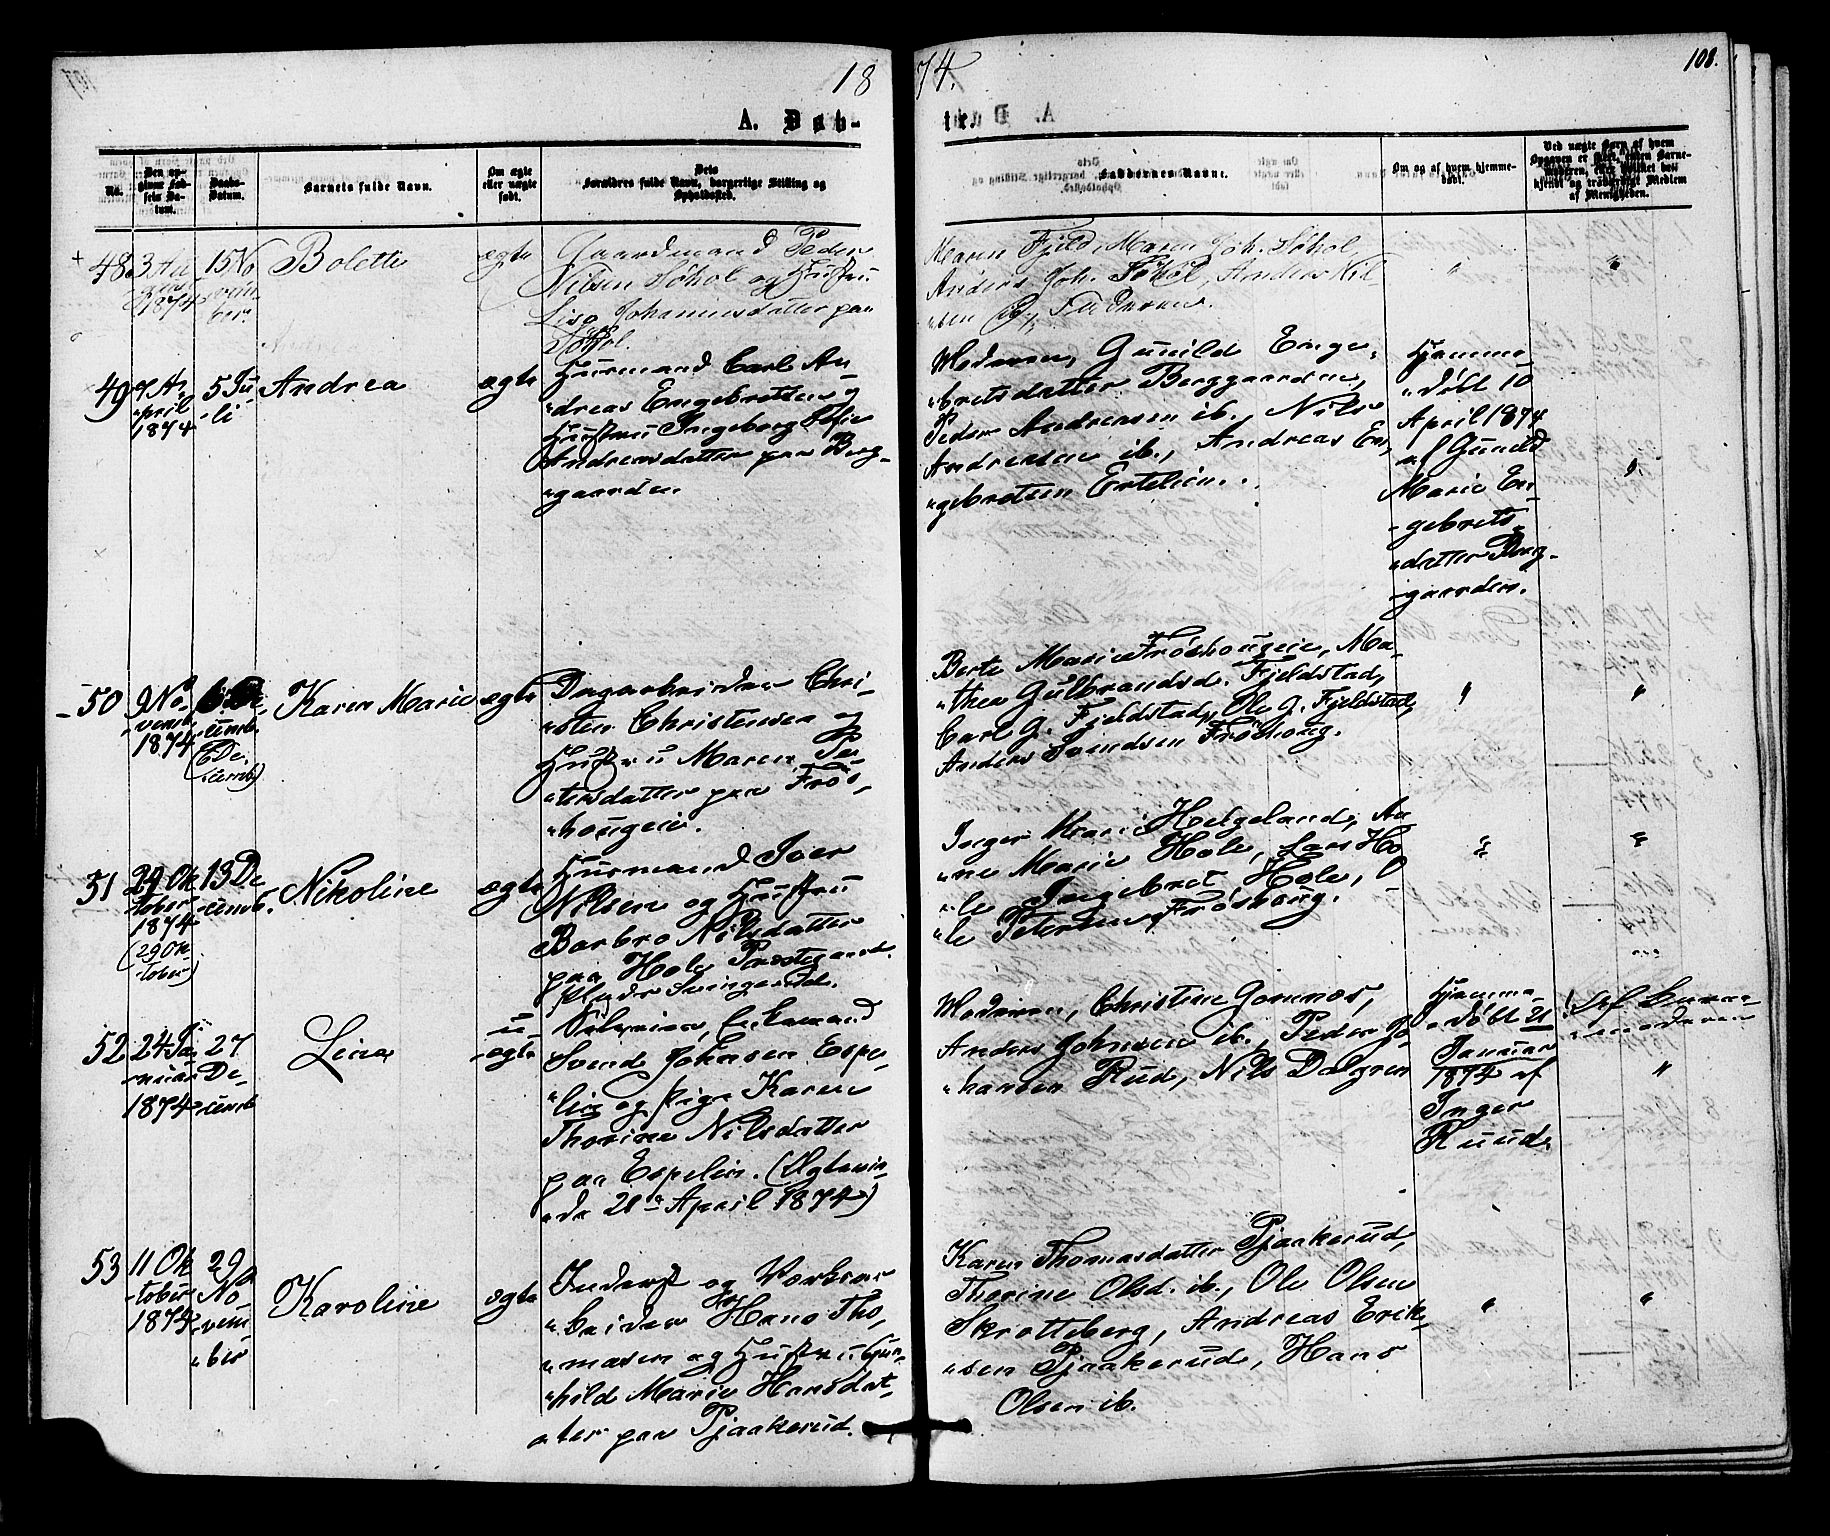 1874.
108.
A. Døbte.
No.
Barnets fulde Navn.
Om ægte eller uægte født.
Forældres fulde Navn, borgerlige Stilling og Opholdssted.
Faddernes Navne.
Om og af hvem hjemmedøbt.
48.
3 Au
gust
1874
15 No
vem-
ber.
Bolette
ægte
Gaardmand Peder
Nilsen Søhol og Hustru
Lise Johannesdatter paa
Søhol.
Maren Fjeld, Maren Joh. Søhol
Anders Joh. Søhol, Anders Nil
"sen
49
7 A-
"pril
1874
5 Ju
"li
Andrea
ægte
Husmand Carl An
"dreas Engebretsen og
Hustru Ingeborg Sofie
Andreasdatter paa Berg-
"gaarden.
Moderen, Gunild Enge-
"bretsdatter Berggaarden,
Peder Andreasen ib., Nils
Andreasen ib., Andreas En,
"gebretsen Ertelien.
Hjemme
"døbt 10
April 1874
af Gunild
Marie En-
-gebrets-
"datter Berg-
-gaarden.
50
9 No
vemb.
1874
6 De
cemb.
(6 De-
cemb)
Karen Marie
ægte
Dagarbeider Chri-
"sten Christensen og
Hustru Maren Pe-
"tersdatter paa Frøs,
"hougeie.
Berte Marie Frøshougeie, Ma-
"thea Gulbrandsd. Fjeldstad,
Carl G. Fjeldstad, Ole G. Fjeldstad,
Anders Svendsen Frøshoug.
51
29 Ok
tober
1874
(29 Ok
-tober)
13 De
cemb.
Nikoline
ægte
Husmand Iver
Nilsen og Hustru
Barbro Nilsdatter
paa Hole Præstegaards
Plads Svingerud.
Inger Marie Helgeland, An
"ne Marie Hole, Lars Ho
"le Ingebret Hole, O
"le Petersen Frøshoug.
52
24 Ja
-nuar
1874
27
De-
cemb
Lina
u-
-ægte
Selveier, Enkemand
Svend Johnsen Espe-
"lien og Pige Karen
Thorine Nilsdatter
paa Espelien. (Ægtevie
"de 21de April 1874)
Moderen, Christine Gomnæs,
Anders Johnsen ib., Peder Jo
"hansen Rud, Nils Dalgren
Hjemme
"døbt 21
Januar
1874 af
Inger
Ruud.
Af Barne
"moderen
53
11 Ok
-tober
1874
29
No
-vem
"ber
Karoline
ægte
Inderst og Værksar
"beider Hans Tho,
"masen og Hustru Gun-
"hild Marie Hansdat-
"ter paa Pjaakerud.
Karen Thomasdatter Pjaakerud,
Thorine Olsd. ib., Ole Olsen
Skrotteberg, Andreas Erik-
"sen Pjaakerud, Hans
Olsen ib.